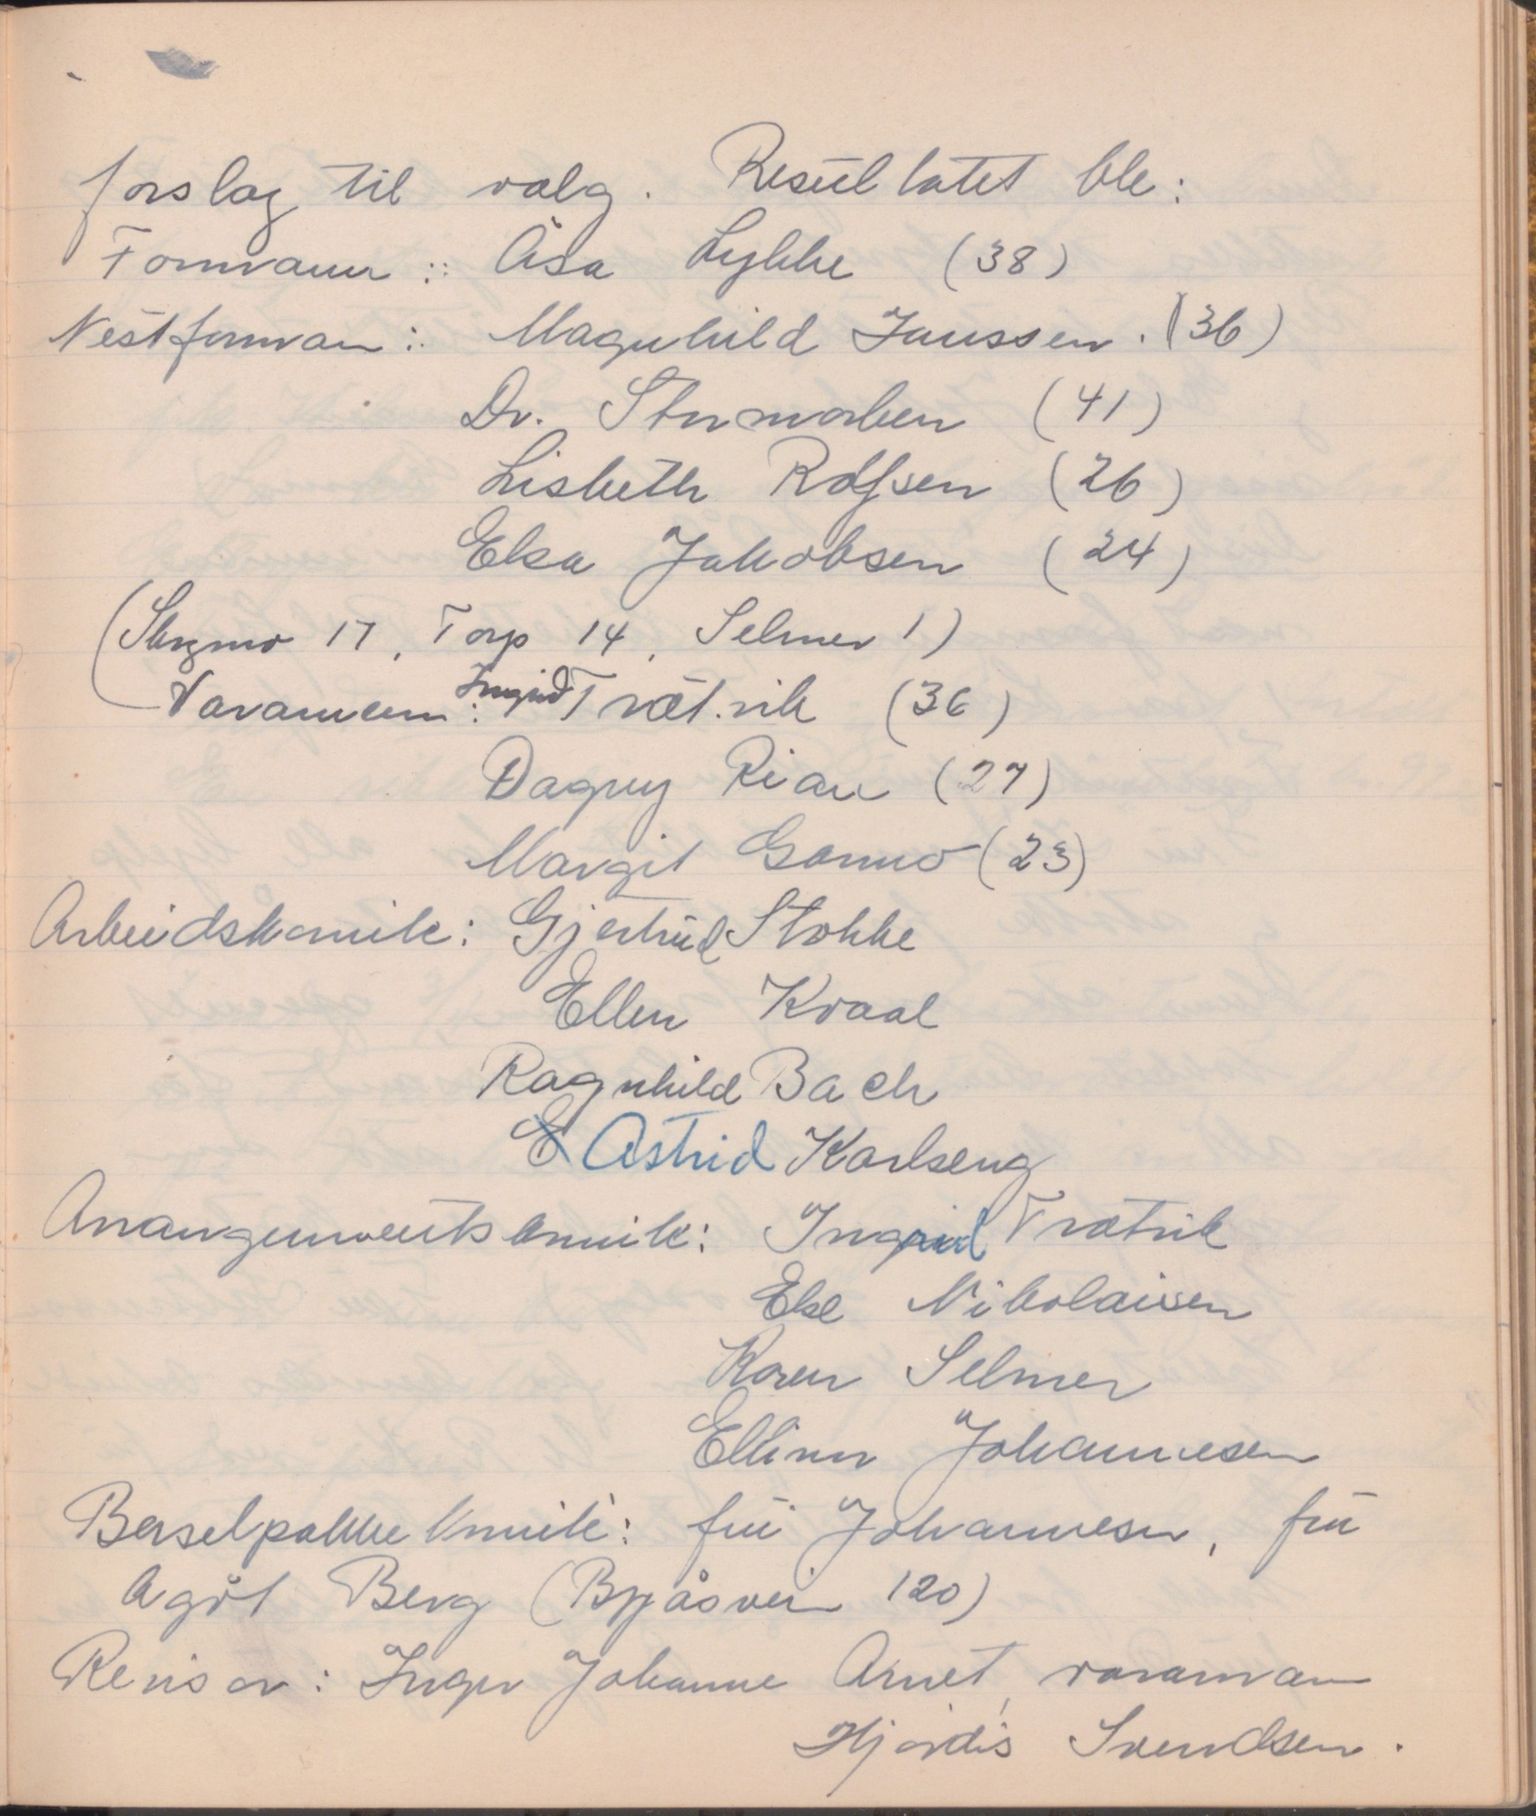 forslag til valg. Resultatet ble:
Formann: Åsa Lykke (38)
Nestforman: Magnhild Janssen. (36)
Dr. Stormorken (41)
Lisbeth Rolfsen (26)
Elsa Jakobsen (24)
(Skrgmo 17, Torp 14, Selmer 1)
Varamenn: Ingrid Trætvik (36)
Dagny Rian (27)
Margit Gamno (23)
Arbeidskomite: Gjertrud Stokke
Ellen Kraal
Ragnhild Bach
Astrid Karlseng
Arrangementskomite: Ingrid Trætvik
Else Nikolaisen
Karen Selmer
Ellinor Johannesen
Barselpakkekomite: frú Johannesen, frú
Agöt Berg (Byåsvein 120)
Revisor: Inger Johanne Arnet, varaman
Hjördis Svendsen.